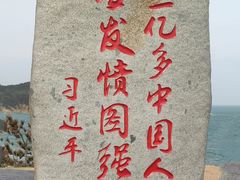 亿多中国人
发愤图强
习近平